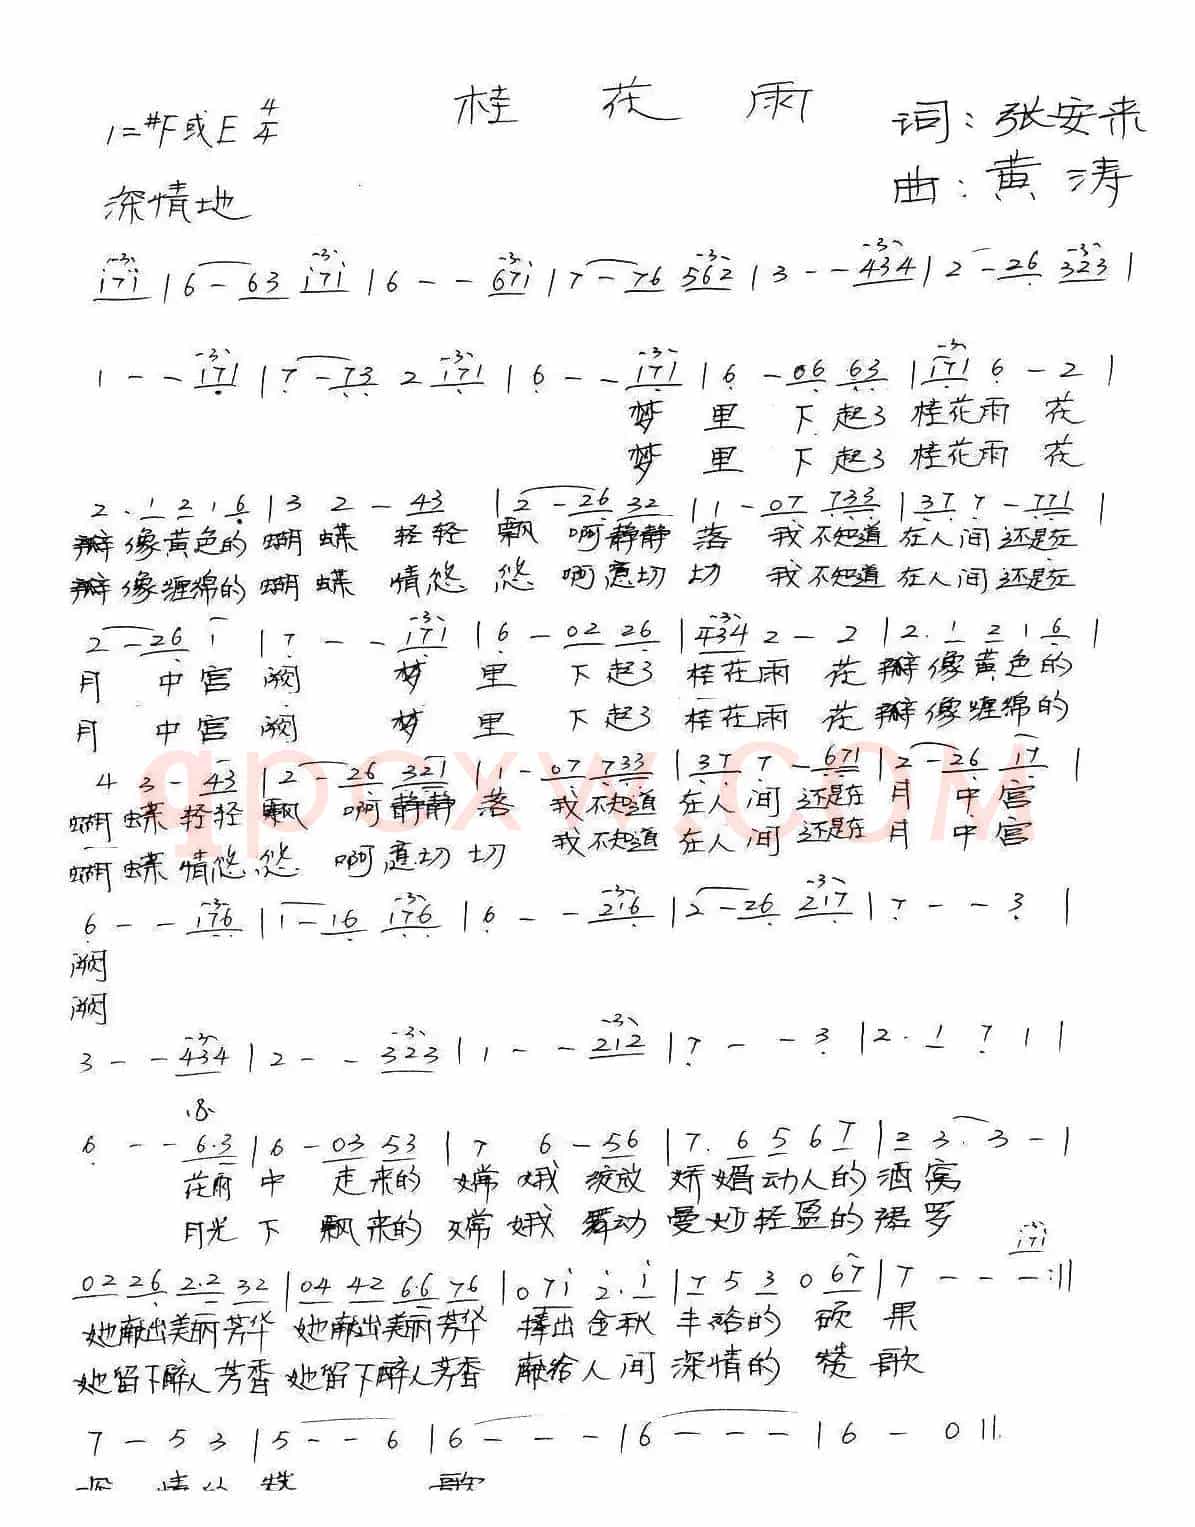 桂花雨
1=#F或E 4/4
词：张安来
曲：黄涛
深情地
i7i | 6 - 63 i7i | 6 - - 67i | 7 - 76 562 | 3 - - 434 | 2 - 26 323 |
1 - - 171 | 7 - 73 2 171 | 6 - - 171 | 6 - 06 63 | 171 6 - 2 |
梦 里 下起了 桂花雨 花
梦 里 下起了 桂花雨 花
2. 1 2 1 6 | 3 2 - 43 | 2 - 26 32 | 1 - 07 733 | 37 7 - 771 |
瓣像黄色的 蝴蝶 轻轻 飘 啊静静 落 我不知道 在人间 还是在
瓣像缠绵的 蝴蝶 情悠 悠 啊意切 切 我不知道 在人间 还是在
2 - 26 1 | 7 - - 171 | 6 - 02 26 | 434 2 - 2 | 2. 1 2 1 6 |
月 中宫 阙 梦 里 下起了 桂花雨 花 瓣像黄色的
月 中宫 阙 梦 里 下起了 桂花雨 花 瓣像缠绵的
4 3 - 43 | 2 - 26 321 | 1 - 07 733 | 37 7 - 671 | 2 - 26 17 |
蝴蝶 轻轻 飘 啊静静 落 我不知道 在人间 还是在 月 中宫
蝴蝶 情悠 悠 啊意切 切 我不知道 在人间 还是在 月 中宫
6 - - 176 | 1 - 16 176 | 6 - - 216 | 2 - 26 217 | 7 - - 3 |
阙
阙
3 - - 434 | 2 - - 323 | 1 - - 212 | 7 - - 3 | 2. 1 7 1 |
6 - - 6.3 | 6 - 03 53 | 7 6 - 56 | 7. 6 5 6 7 | 2 3. 3 - |
花雨 中 走来的 嫦娥 绽放 娇媚动人的 酒窝
月光 下 飘来的 嫦娥 舞动 曼妙轻盈的 裙罗
i7i
02 26 2.2 32 | 04 42 6.6 76 | 0 7i 2. i | 7 5 3 0 67 | 7 - - - :||
她献出美丽芳华 她献出美丽芳华 捧出金秋 丰裕的 硕果
她留下醉人芳香 她留下醉人芳香 献给人间 深情的 赞歌
7 - 5 3 | 5 - - 6 | 6 - - - | 6 - - - | 6 - 0 ||
深 情的 赞 歌
qpcxw.COM